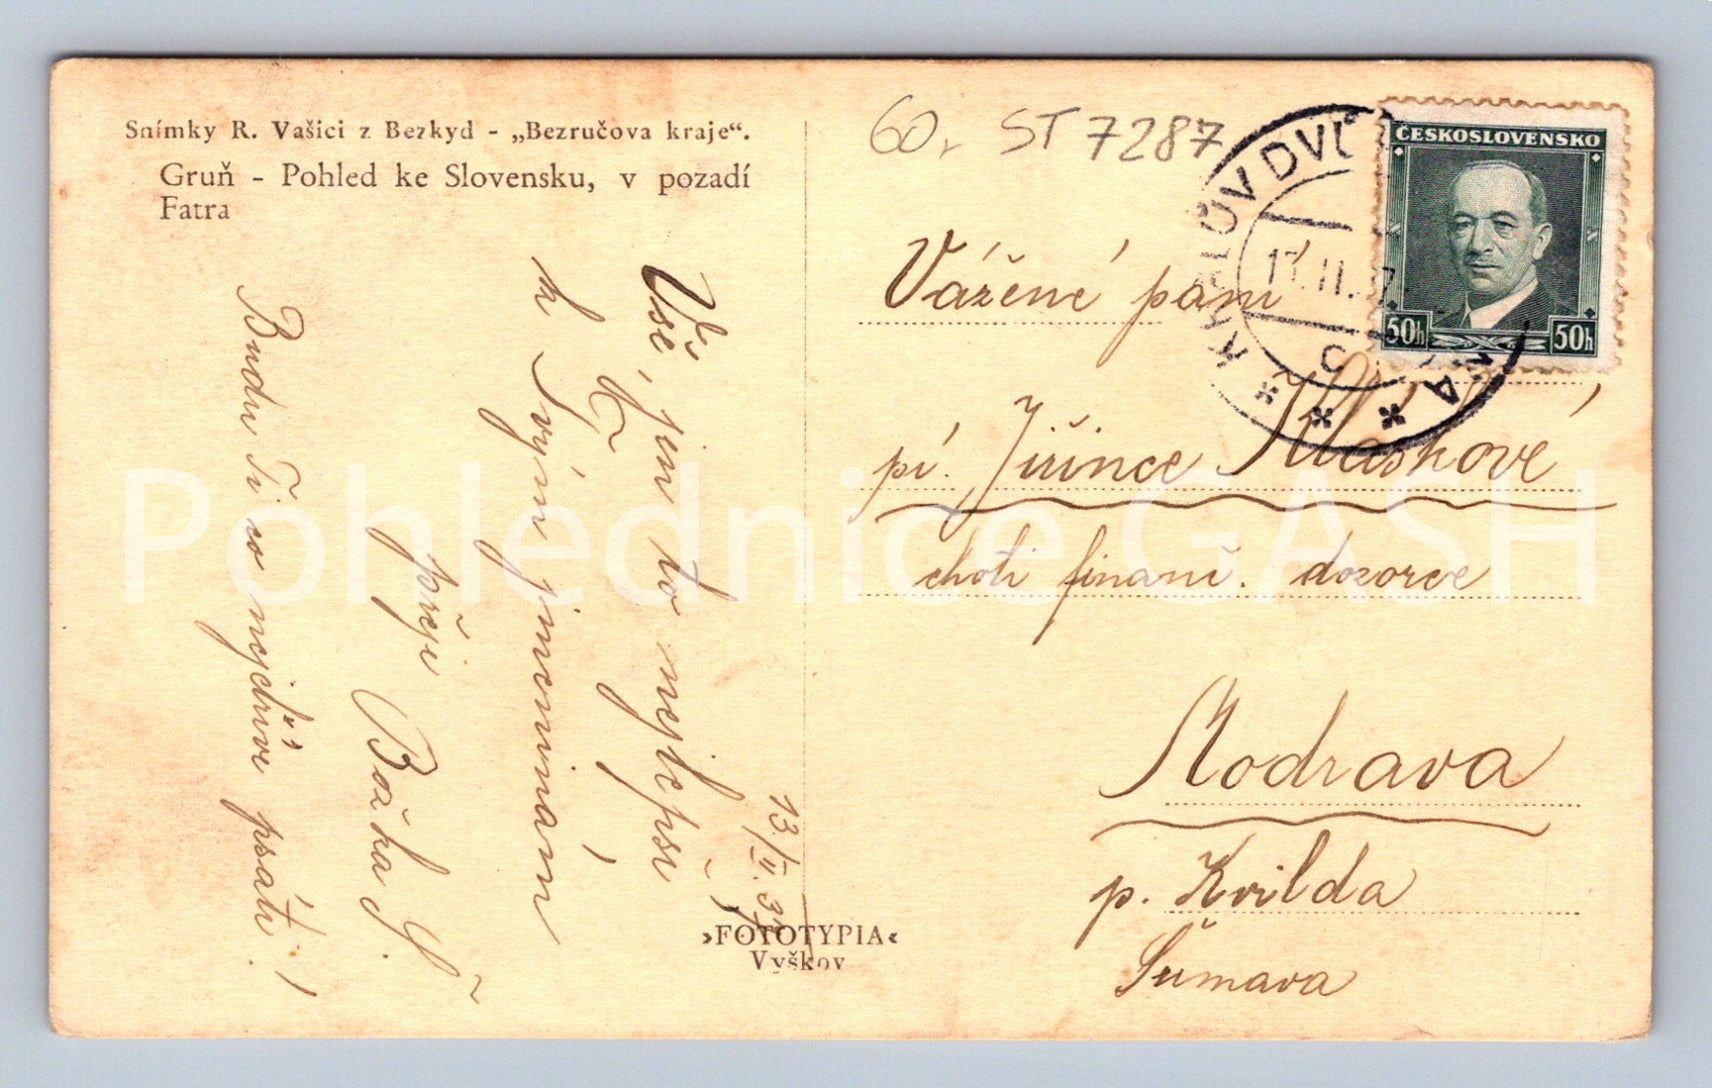 Snímky R. Vašici z Bezkyd - „Bezručova kraje“.
Gruň - Pohled ke Slovensku, v pozadí
Fatra
60,- ST 7287
ČESKOSLOVENSKO
50h 50h
KRÁLŮV DV
13/II. 37
Vše, jen to nejlepší
k Tvým jmeninám
přeje Božka Š.
Budu Ti co nejdříve psáti!
Vážené paní
pí. Jiřince
choti finanč. dozorce
Modrava
p. Kvilda
Šumava
»FOTOTYPIA«
Vyškov
Pohlednice GASH